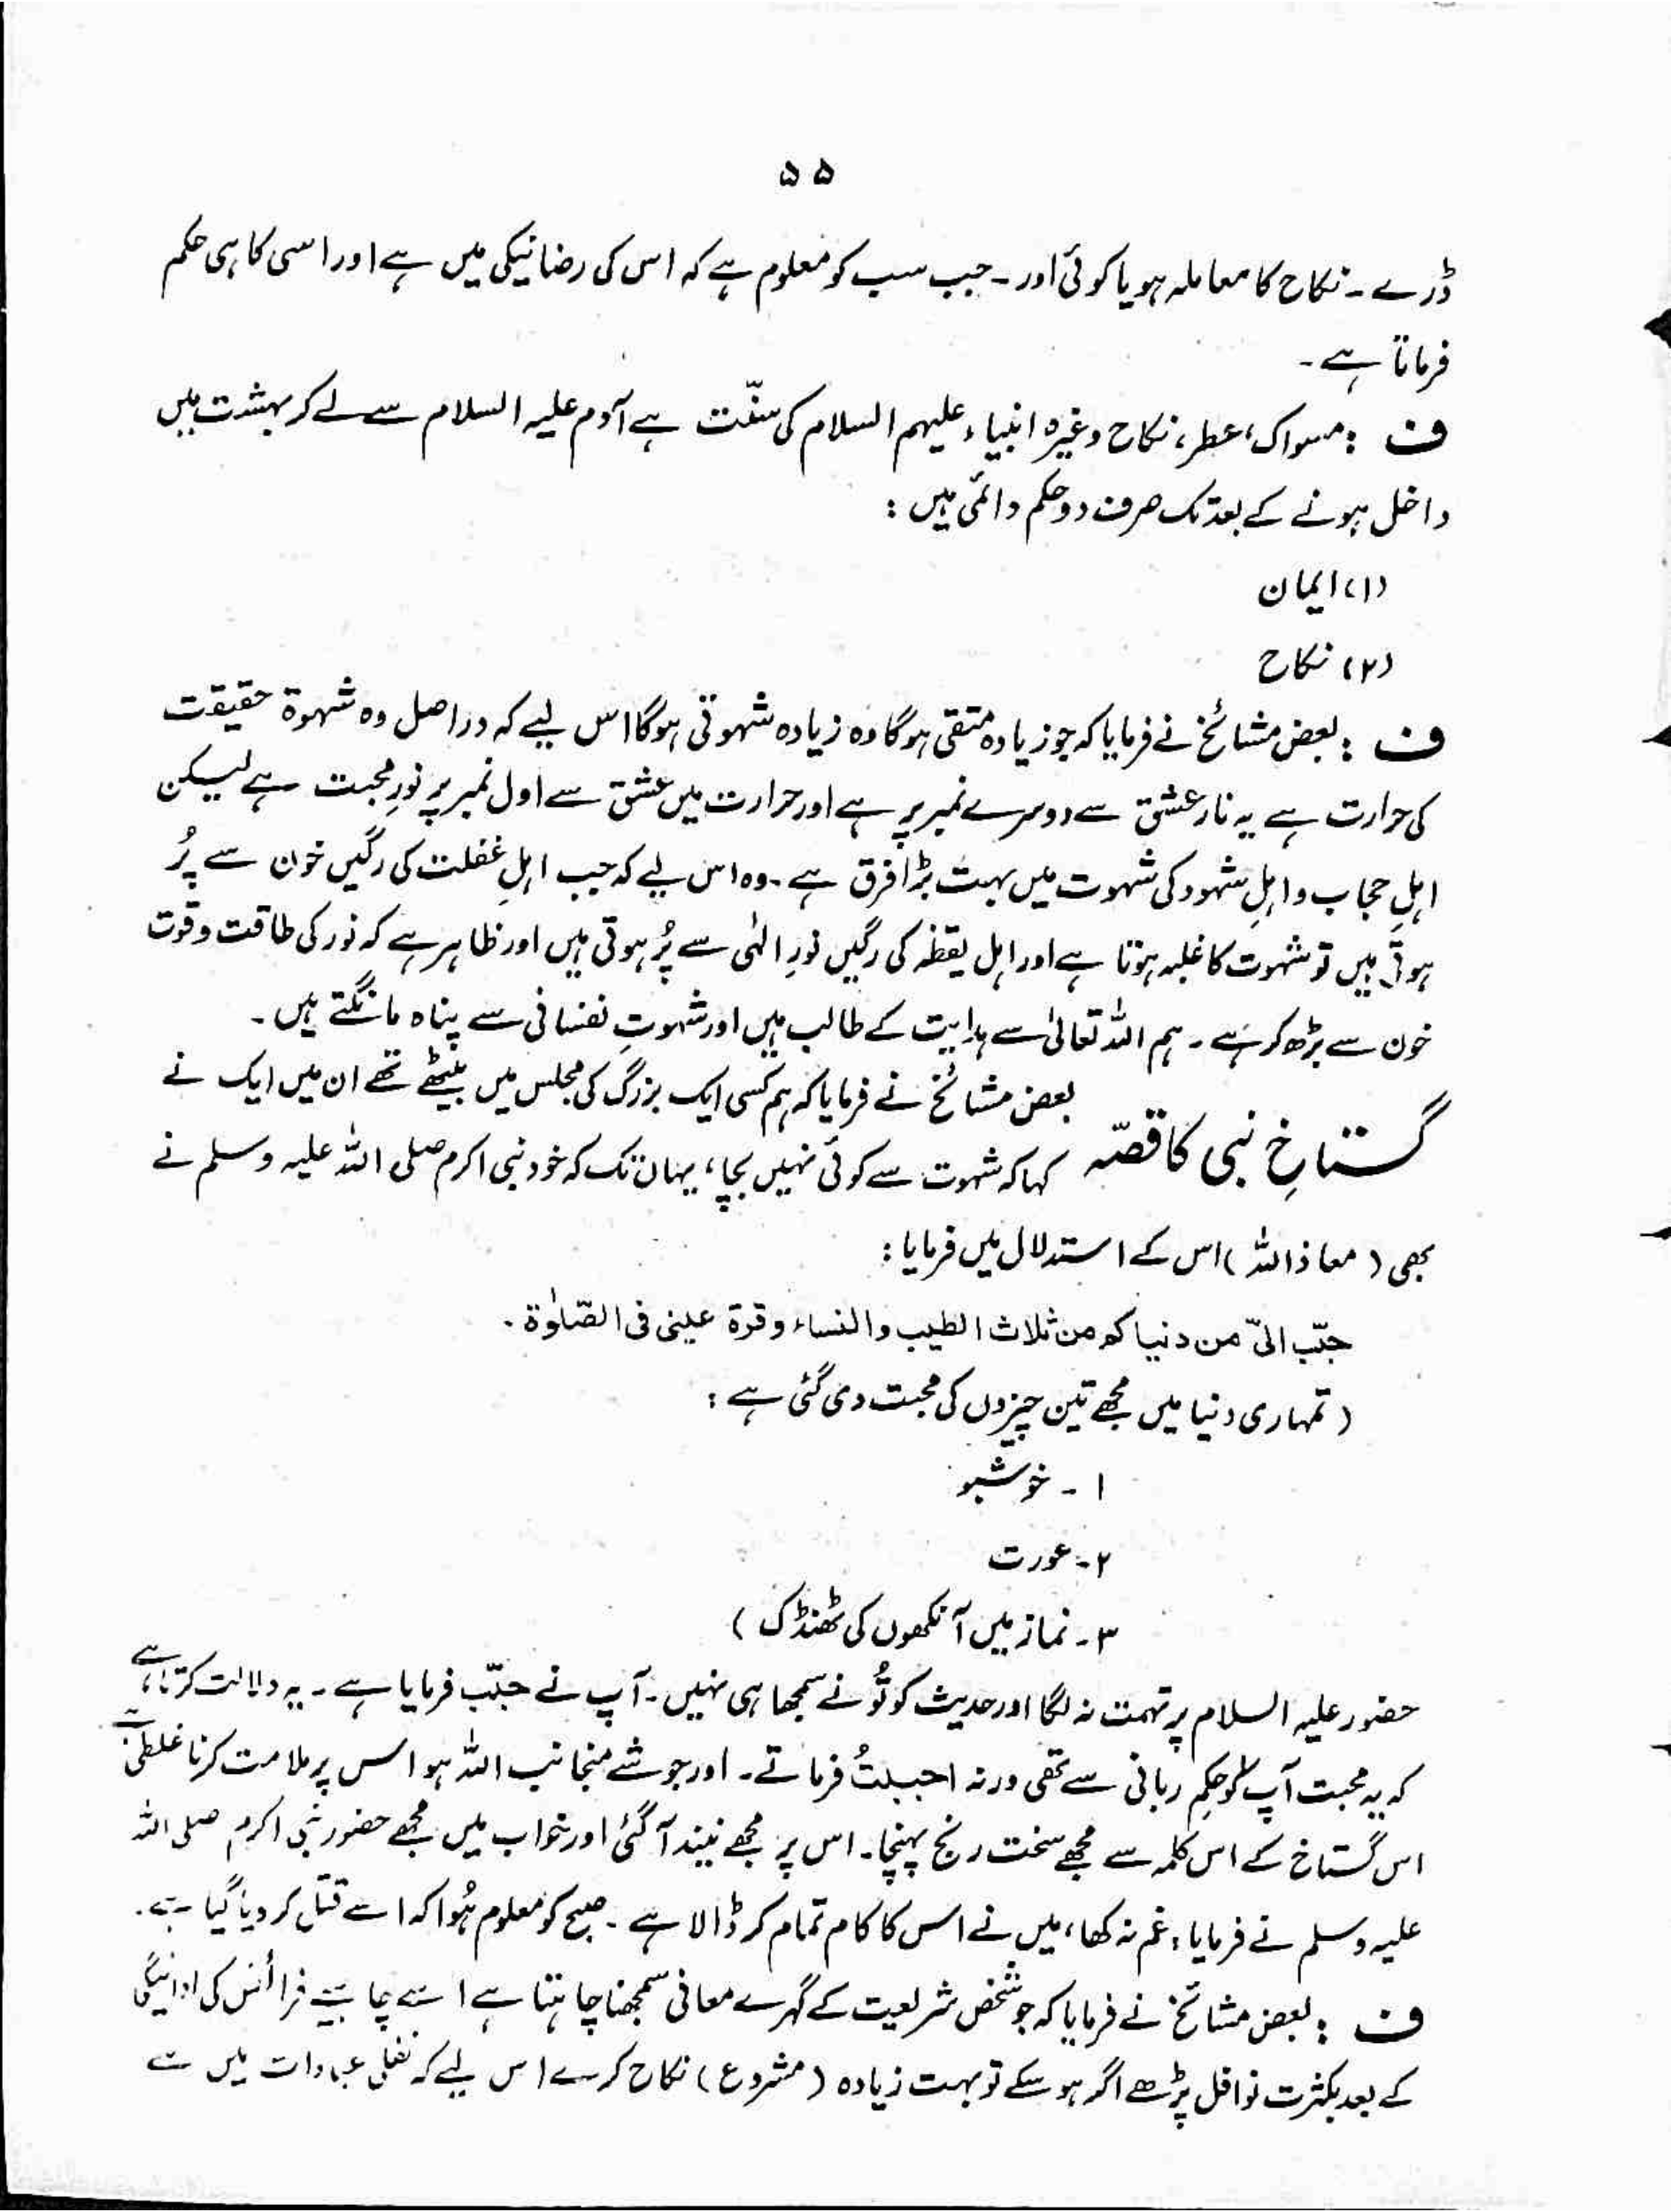 ۵۵
ڈرے ۔ نکاح کا معاملہ ہو یا کوئی اور ۔ جب سب کو معلوم ہے کہ اس کی رضا نیکی میں ہے اور اسی کا ہی حکم
فرماتا ہے ۔
ف : مسواک، عطر، نکاح وغیرہ انبیاء علیہم السلام کی سنّت ہے آدم علیہ السلام سے لے کر بہشت میں
داخل ہونے کے بعد تک صرف دو حکم دائمی ہیں :
(۱) ایمان
(۲) نکاح
ف : بعض مشائخ نے فرمایا کہ جو زیادہ متقی ہوگا وہ زیادہ شہوتی ہوگا اس لیے کہ دراصل وہ شہوۃ حقیقت
کی حرارت ہے یہ نار عشق سے دوسرے نمبر پر ہے اور حرارت میں عشق سے اول نمبر پر نورِ محبت ہے لیکن
اہلِ حجاب و اہلِ شہود کی شہوت میں بہت بڑا فرق ہے ۔ وہ اس لیے کہ جب اہلِ غفلت کی رگیں خون سے پُر
ہوتی ہیں تو شہوت کا غلبہ ہوتا ہے اور اہل یقظہ کی رگیں نورِ الٰہی سے پُر ہوتی ہیں اور ظاہر ہے کہ نور کی طاقت و قوت
خون سے بڑھ کر ہے ۔ ہم اللہ تعالیٰ سے ہدایت کے طالب ہیں اور شہوتِ نفسانی سے پناہ مانگتے ہیں ۔
گستاخِ نبی کا قصّہ بعض مشائخ نے فرمایا کہ ہم کسی ایک بزرگ کی مجلس میں بیٹھے تھے ان میں ایک نے
کہا کہ شہوت سے کوئی نہیں بچا ، یہاں تک کہ خود نبی اکرم صلی اللہ علیہ وسلم نے
بھی ( معاذ اللہ ) اس کے استدلال میں فرمایا :
حبّب الیّ من دنیا کو من ثلاث الطیب والنساء وقرۃ عینی فی الصّلوٰۃ ۔
( تمہاری دنیا میں مجھے تین چیزوں کی محبت دی گئی ہے :
۱ ۔ خوشبو
۲ ۔ عورت
۳ ۔ نماز میں آنکھوں کی ٹھنڈک )
حضور علیہ السلام پر تہمت نہ لگا اور حدیث کو تُو نے سمجھا ہی نہیں ۔ آپ نے حبّب فرمایا ہے ۔ یہ دلالت کرتا ہے
کہ یہ محبت آپ کو حکمِ ربانی سے تھی ورنہ احببتُ فرماتے ۔ اور جو شے منجانب اللہ ہو اس پر ملامت کرنا غلطی ہے
اس گستاخ کے اس کلمہ سے مجھے سخت رنج پہنچا ۔ اس پر مجھے نیند آگئی اور خواب میں مجھے حضور نبی اکرم صلی اللہ
علیہ وسلم نے فرمایا : غم نہ کھا ، میں نے اس کا کام تمام کر ڈالا ہے ۔ صبح کو معلوم ہُوا کہ اسے قتل کر دیا گیا ہے ۔
ف : بعض مشائخ نے فرمایا کہ جو شخص شریعت کے گہرے معانی سمجھنا چاہتا ہے اسے چاہیے فرائض کی ادائیگی
کے بعد بکثرت نوافل پڑھے اگر ہو سکے تو بہت زیادہ ( مشروع ) نکاح کرے اس لیے کہ نفلی عبادات میں سے